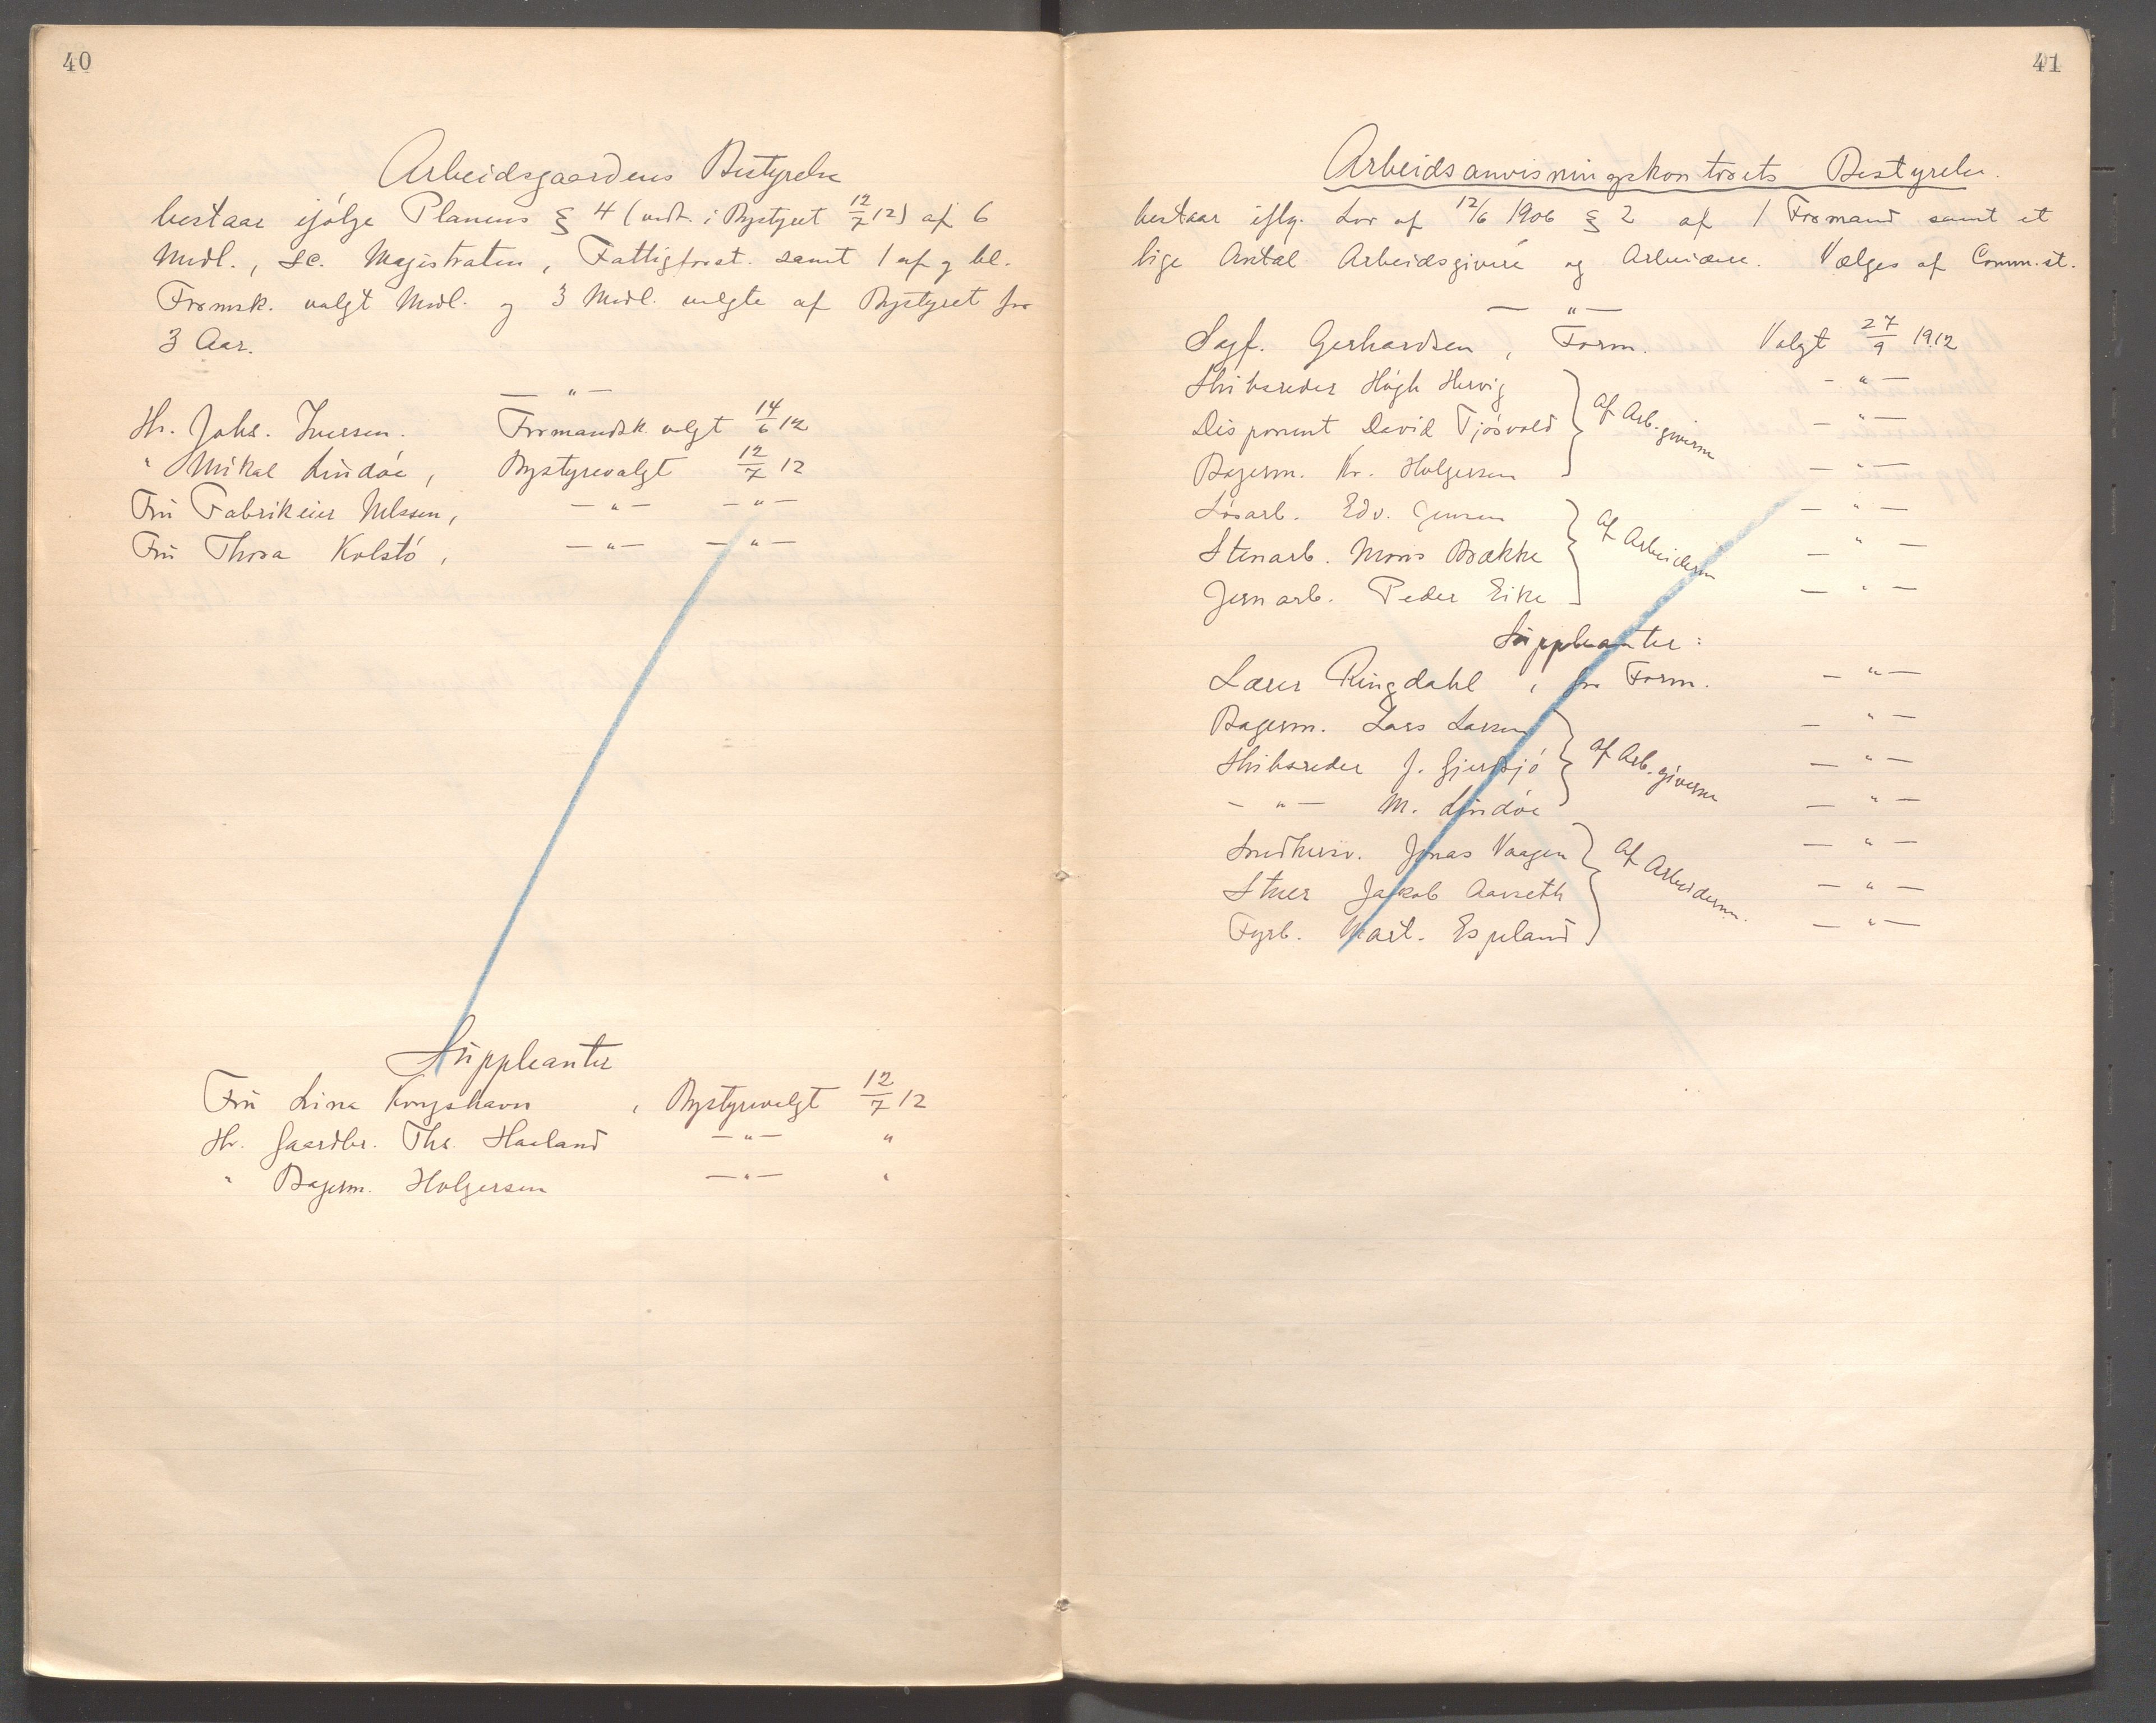 40
Arbeidsgaardens Bestyrelse
bestaar ifølge Planens § 4 (vedt. i Bystyret 12/7 12) af 6
Medl., sc. Magistraten, Fattigforst. samt 1 af og bl.
Formsk. valgt Medl. og 3 Medl. valgte af Bystyret for
3 Aar.
— " —
Hr. Johs. Iversen. Formandsk. valgt 14/6 12
" Mikal Lindøe, Bystyrevalgt 12/7 12
Fru Fabrikeier Nilssen, — " — — " —
Fru Thora Kolstø, — " — — " —
Suppleanter
Fru Lina Kongshavn, Bystyrevalgt 12/7 12
Hr. Gaardbr. Ths. Haaland — " — "
" Bagerm. Holgersen — " — "
41
Arbeidsanvisningskontorets Bestyrelse.
bestaar iflg. Lov af 12/6 1906 § 2 af 1 Formand samt et
lige Antal Arbeidsgivere og Arbeidere. Vælges af Comm.st.
— " —
Sagf. Gerhardsen, Form. Valgt 27/9 1912
Skibsreder Høgh Hervig } af Arb.giverne — " —
Disponent David Tjøsvold — " —
Bagerm. Kr. Holgersen — " —
Løsarb. Edv. Jensen } af Arbeiderne — " —
Stenarb. Mons Brække — " —
Jernarb. Peder Eike — " —
Suppleanter:
Lærer Ringdahl, for Form. — " —
Bagerm. Lars Larsen } af Arb.giverne — " —
Skibsreder J. — " —
— " — M. Lindøe — " —
Snedkersv. Jonas Vaagen } af Arbeiderne. — " —
Jakob Aarseth — " —
Fyrb. Mart. Espeland — " —